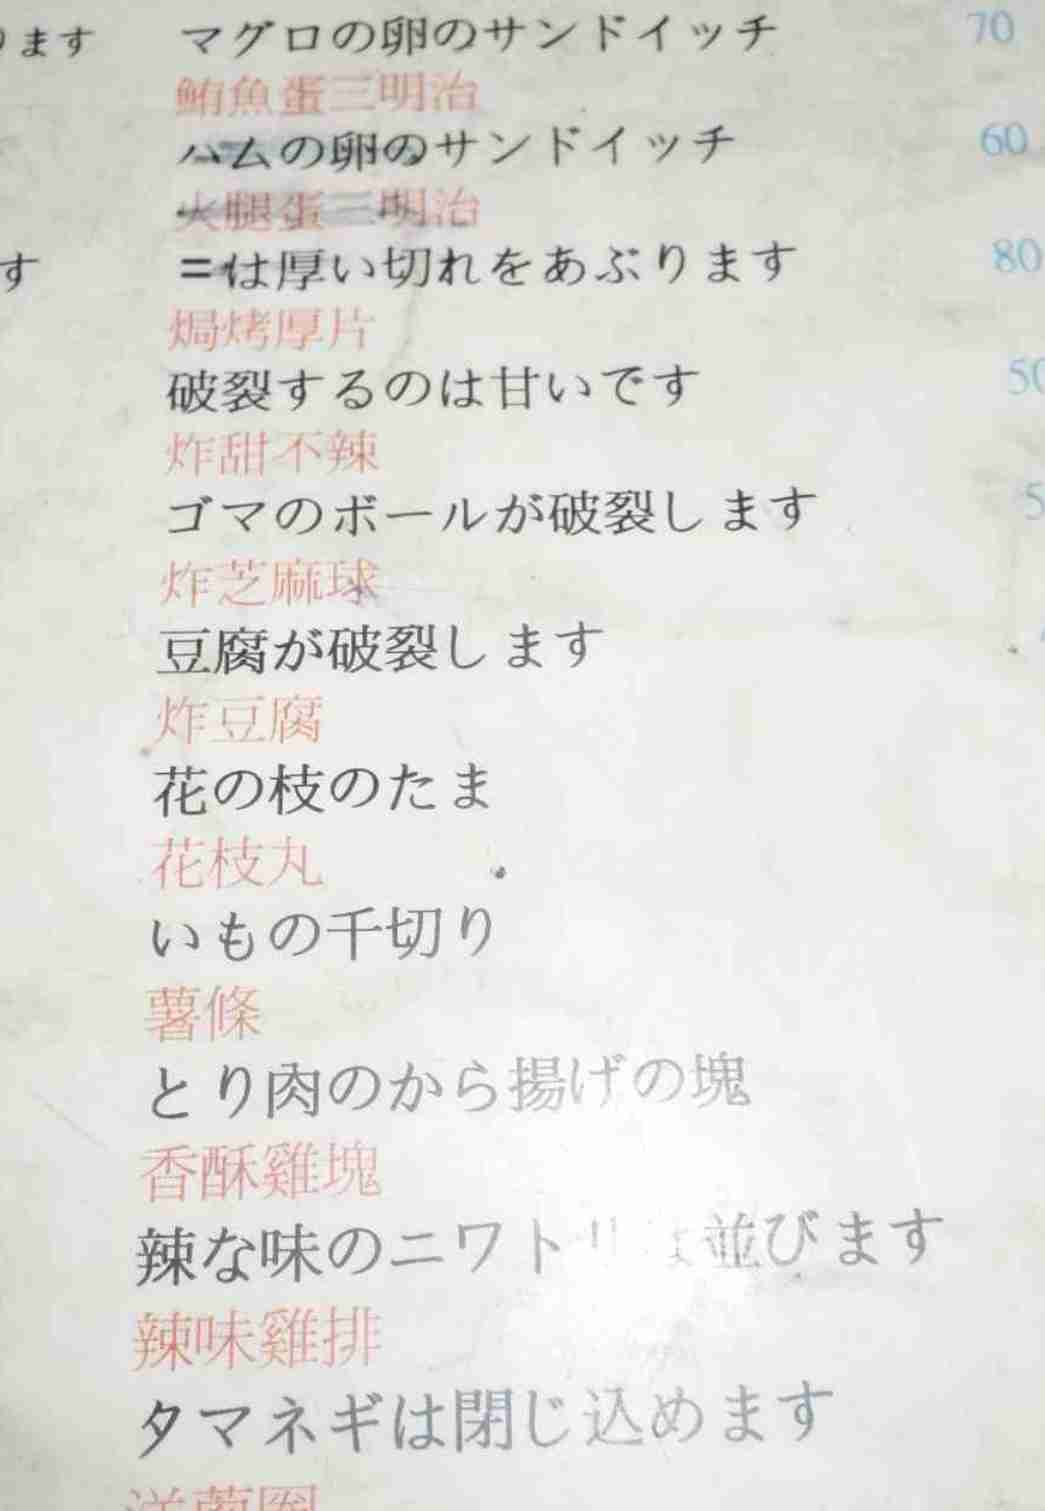 ります マグロの卵のサンドイッチ 70
鮪魚蛋三明治
ハムの卵のサンドイッチ 60
火腿蛋三明治
す =は厚い切れをあぶります 80
焗烤厚片
破裂するのは甘いです 50
炸甜不辣
ゴマのボールが破裂します 5
炸芝麻球
豆腐が破裂します
炸豆腐
花の枝のたま
花枝丸
いもの千切り
薯條
とり肉のから揚げの塊
香酥雞塊
辣な味のニワトリは並びます
辣味雞排
タマネギは閉じ込めます
洋蔥圈